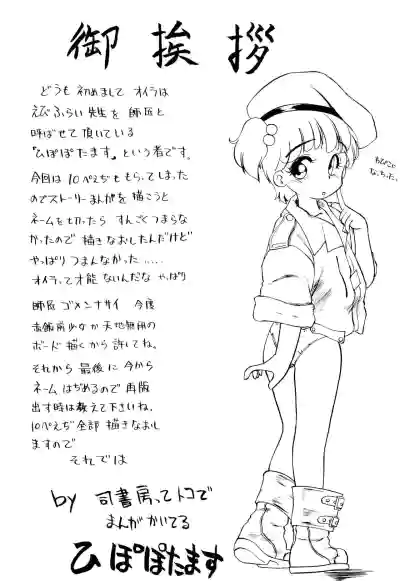 御挨拶
どうも 初めまして オイラは
えびふらい先生を 師匠と
呼ばせて頂いている
『ひぽぽたます』という者です。
今回は 10ぺえぢももらってしまった
のでストーリーまんがを描こうと
ネームを切ったら すんごくつまらな
かったので 描きなおしたんだけど
やっぱり つまんなかった .....
オイラって才能ないんだな やっぱり
師匠 ゴメンナサイ 今度
天地無用の
ボード描くから許してね。
それから 最後に 今から
ネームはぢめるので 再販
出す時は教えて下さいね。
10ぺえぢ全部 描きなおし
ますので
それでは
by 司書房ってトコで
まんがかいてる
ひぽぽたます
なっちった。